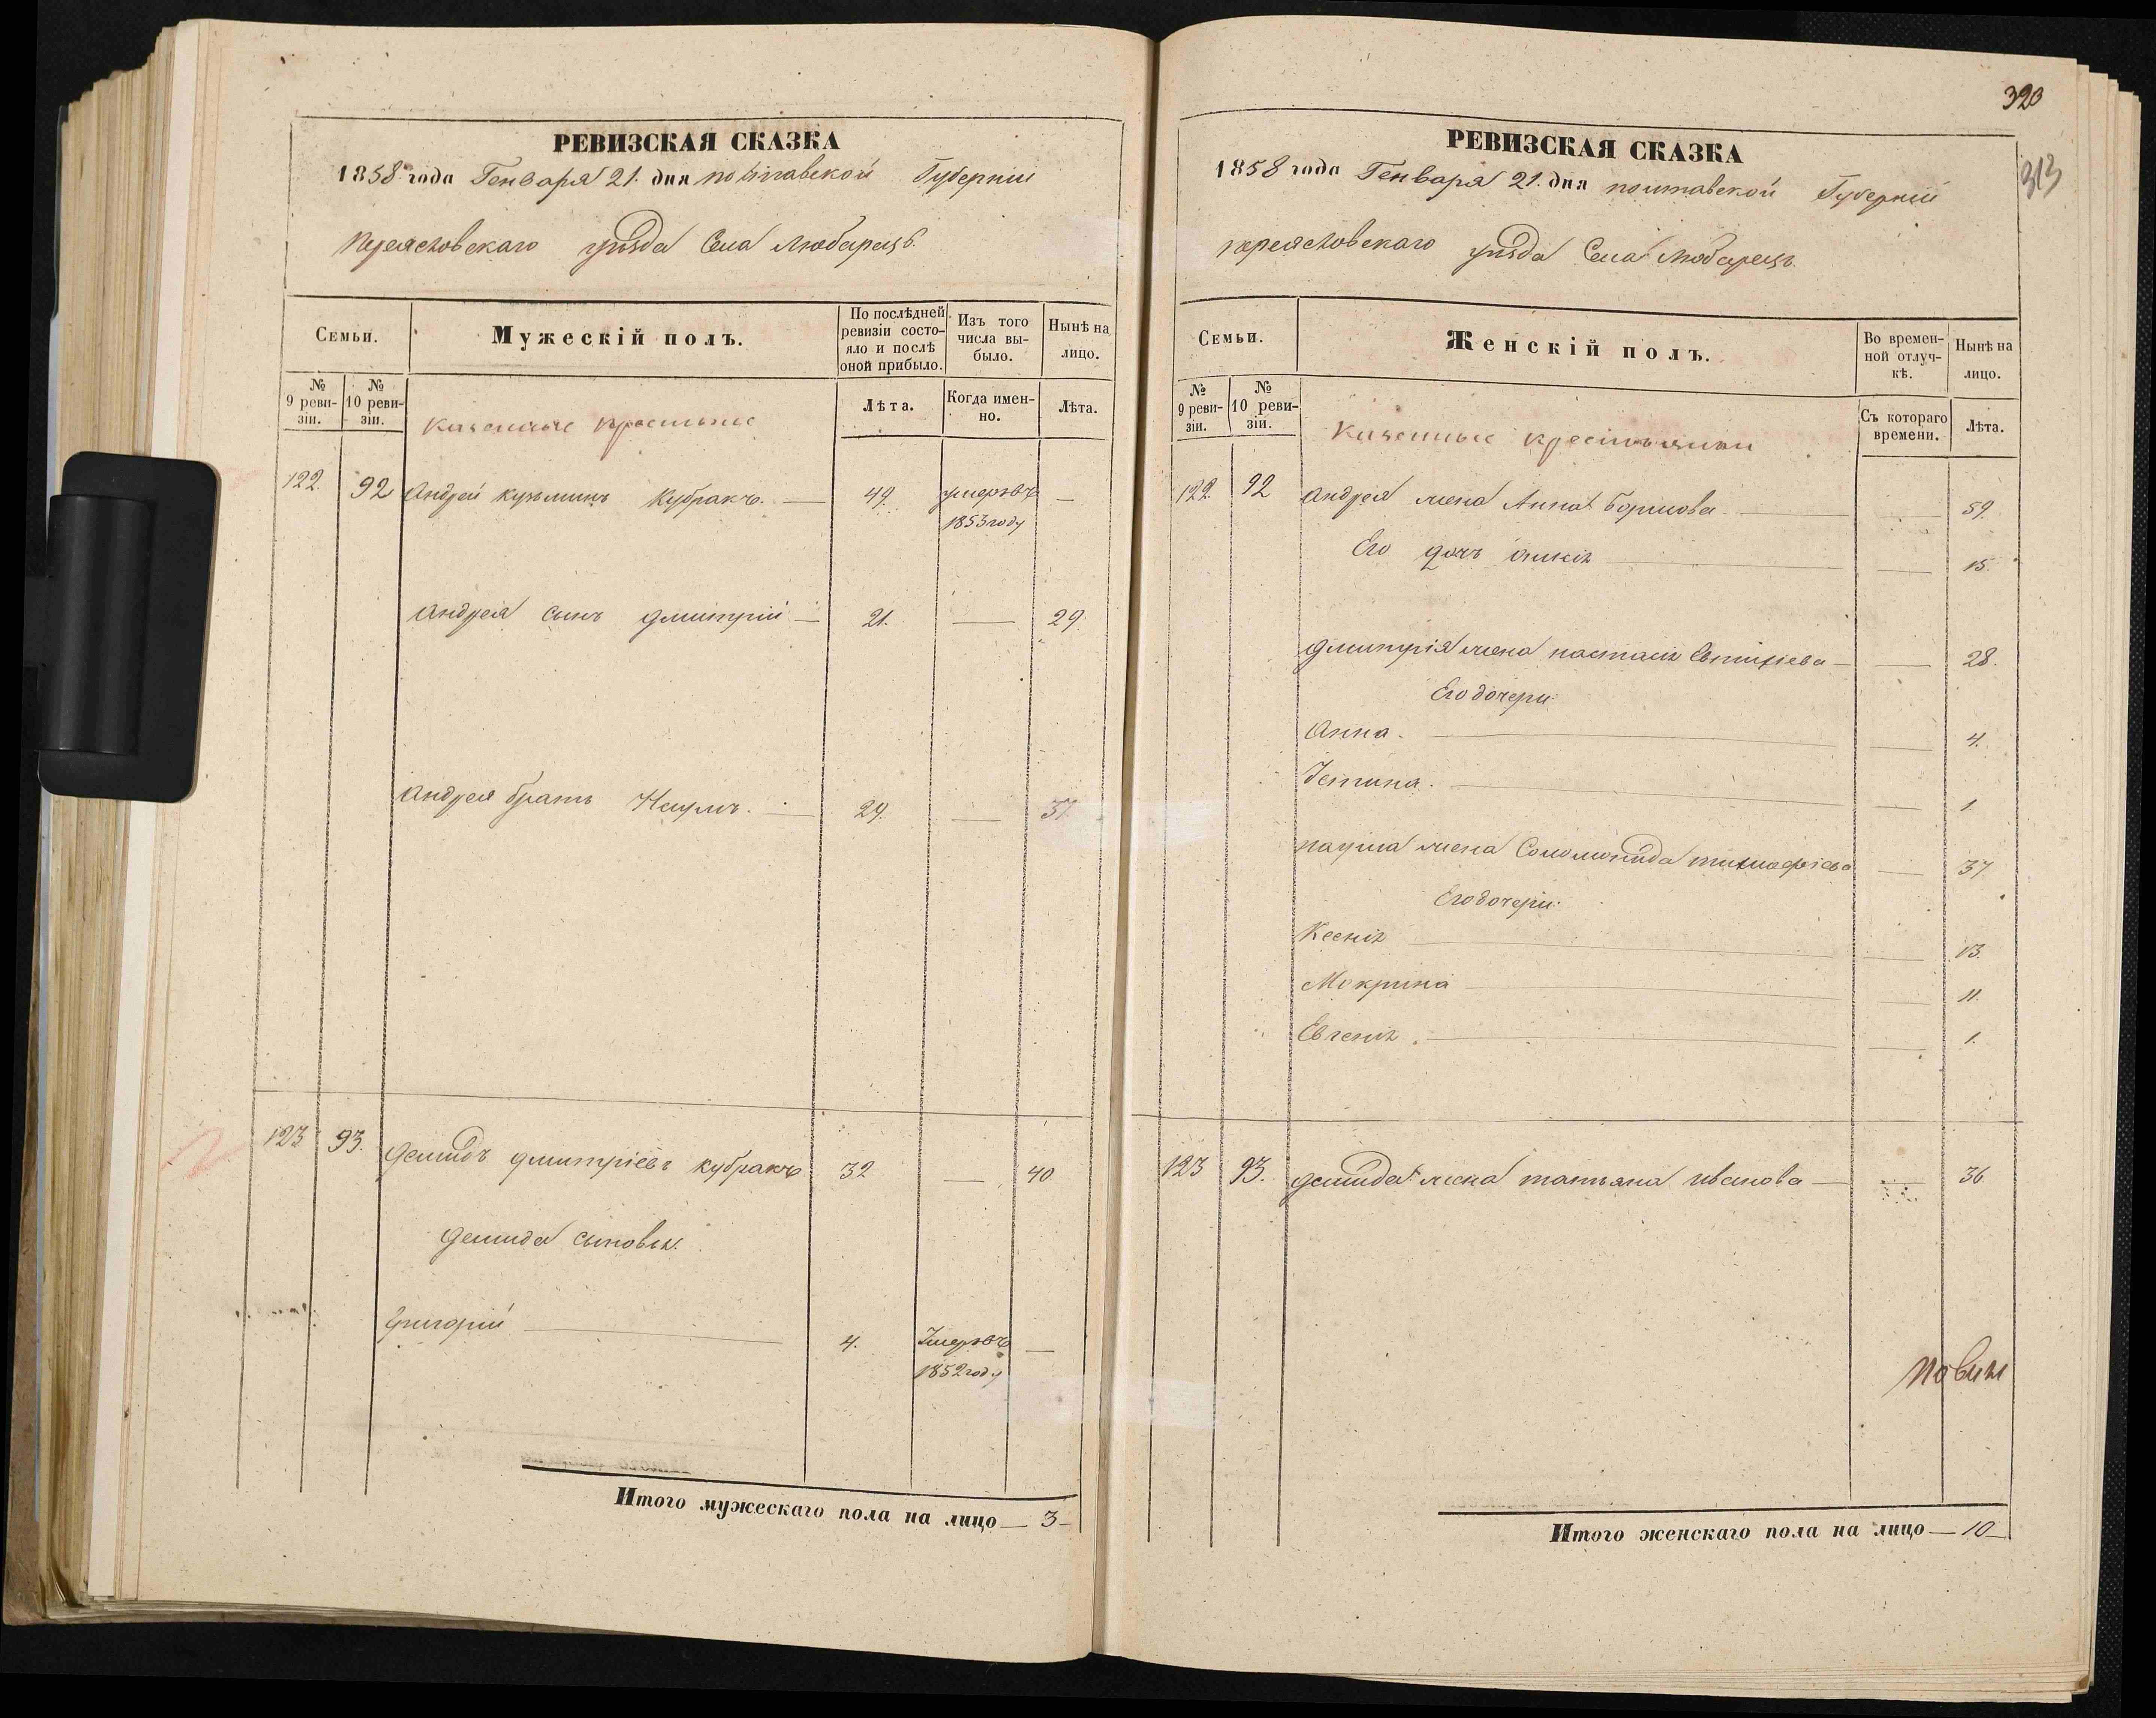 РЕВИЗСКАЯ СКАЗКА
1858 года Генваря 21. дня полтавской Губернии
переясловскаго уѣзда Села Любарецъ.
Семьи.
Мужескій полъ.
По послѣдней ревизіи состояло и послѣ оной прибыло.
Изъ того числа выбыло.
Нынѣ на лицо.
№ 9 ревизіи.
№ 10 ревизіи.
Лѣта.
Когда именно.
Лѣта.
Казенные крестьяне
122. 92 Андрей кузьминъ Кубракъ. — 49. умеръвъ —
1853 году
Андрея сынъ дмитрій — 21. — 29.
Андрея братъ Наумъ. — 29. — 37.
123 93. демидъ дмитріевъ кубракъ 32 — 40.
демида сыновья.
Григорій — 4. Умеръвъ —
1852 году
Итого мужескаго пола на лицо — 3 —
320
313
РЕВИЗСКАЯ СКАЗКА
1858 года Генваря 21. дня полтавской Губерніи
переясловскаго уѣзда Села Любарецъ.
Семьи.
Женскій полъ.
Во временной отлучкѣ.
Нынѣ на лицо.
№ 9 ревизіи.
№ 10 ревизіи.
Съ котораго времени.
Лѣта.
Казенные крестьянки
122. 92 Андрея жена Анна — 59.
Его дочь — 15.
дмитрія жена настасія Евтихіева — — 28.
Его дочери:
Анна. — — 4.
Устина. — — 1.
наума жена Соломонида тимофіева — 37
Его дочери:
Ксенія — — 13.
Мокрина — — 11.
Евгенія. — — 1.
123 93. демида жена татьяна иванова — — 36
Итого женскаго пола на лицо — 10 —